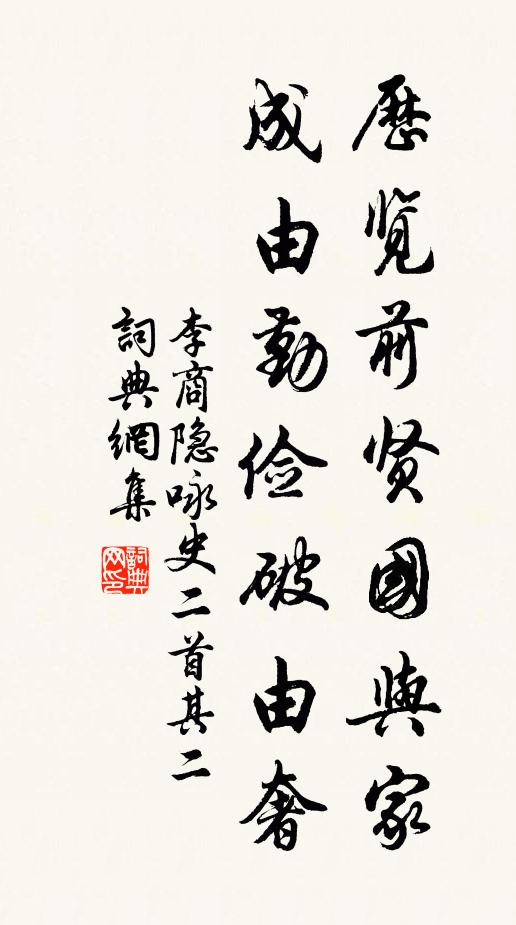 歷覽前贤國與家
成由勤俭破由奢
李商隐咏史二首其二
詞典網集
詞典网印